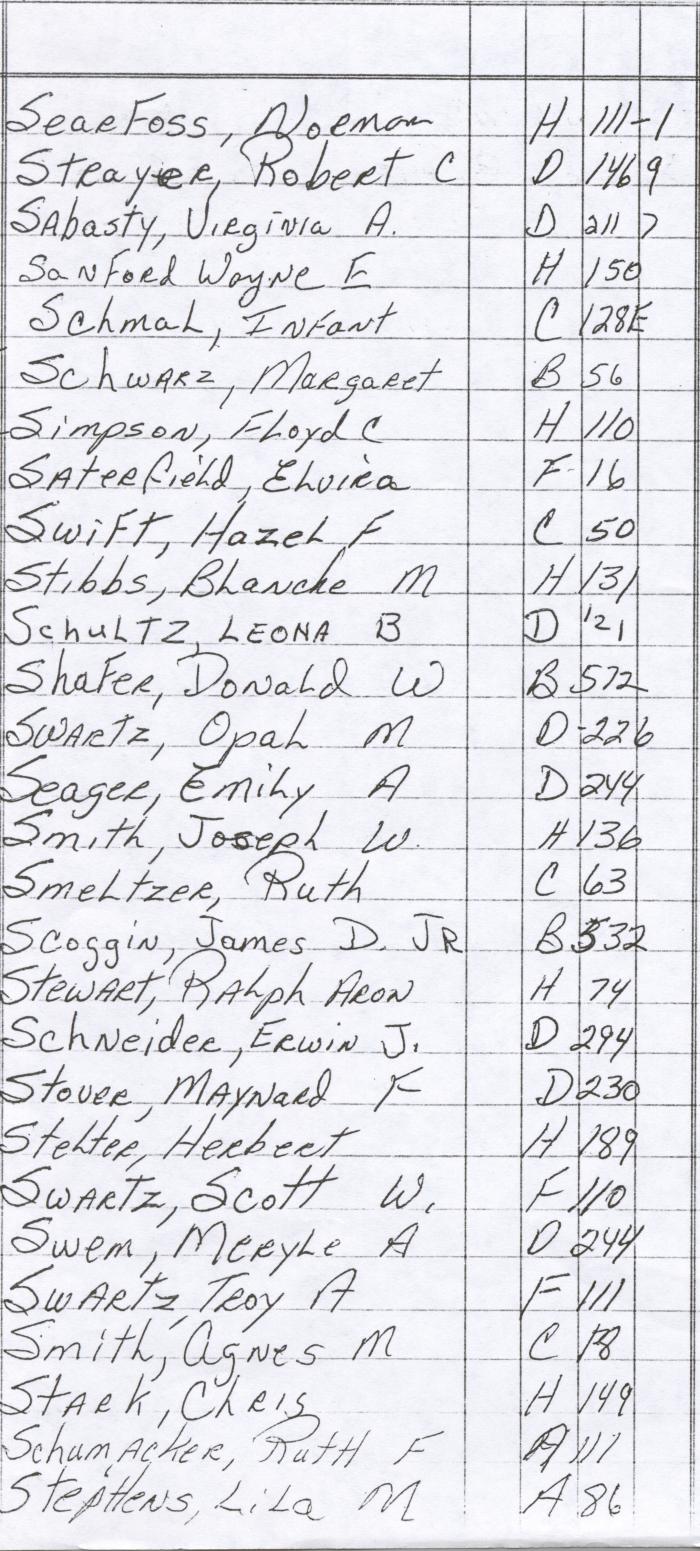 Searfoss, Norman H 111-1
Strayer, Robert C D 146 9
Sabasty, Virginia A. D 211 7
Sanford Wayne E H 150
Schmal, Infant C 128E
Schwarz, Margaret B 56
Simpson, Floyd C H 110
Saterfield, Elvira F 16
Swift, Hazel F C 50
Stibbs, Blanche M H 131
Schultz, LEONA B D 121
Shafer, Donald W B 572
Swartz, Opal M D 226
Seager, Emily A D 244
Smith, Joseph W. H 136
Smeltzer, Ruth C 63
Scoggin, James D. JR B 532
Stewart, Ralph Aron H 74
Schneider, Erwin J. D 294
Stover, Maynard F D 230
Stelter, Herbert H 189
Swartz, Scott W. F 110
Swem, Meryle A D 244
Swartz, Troy A F 111
Smith, Agnes M C
Stark, Chris H 149
Schumacker, Ruth F A 111
Stephens, Lila M A 86